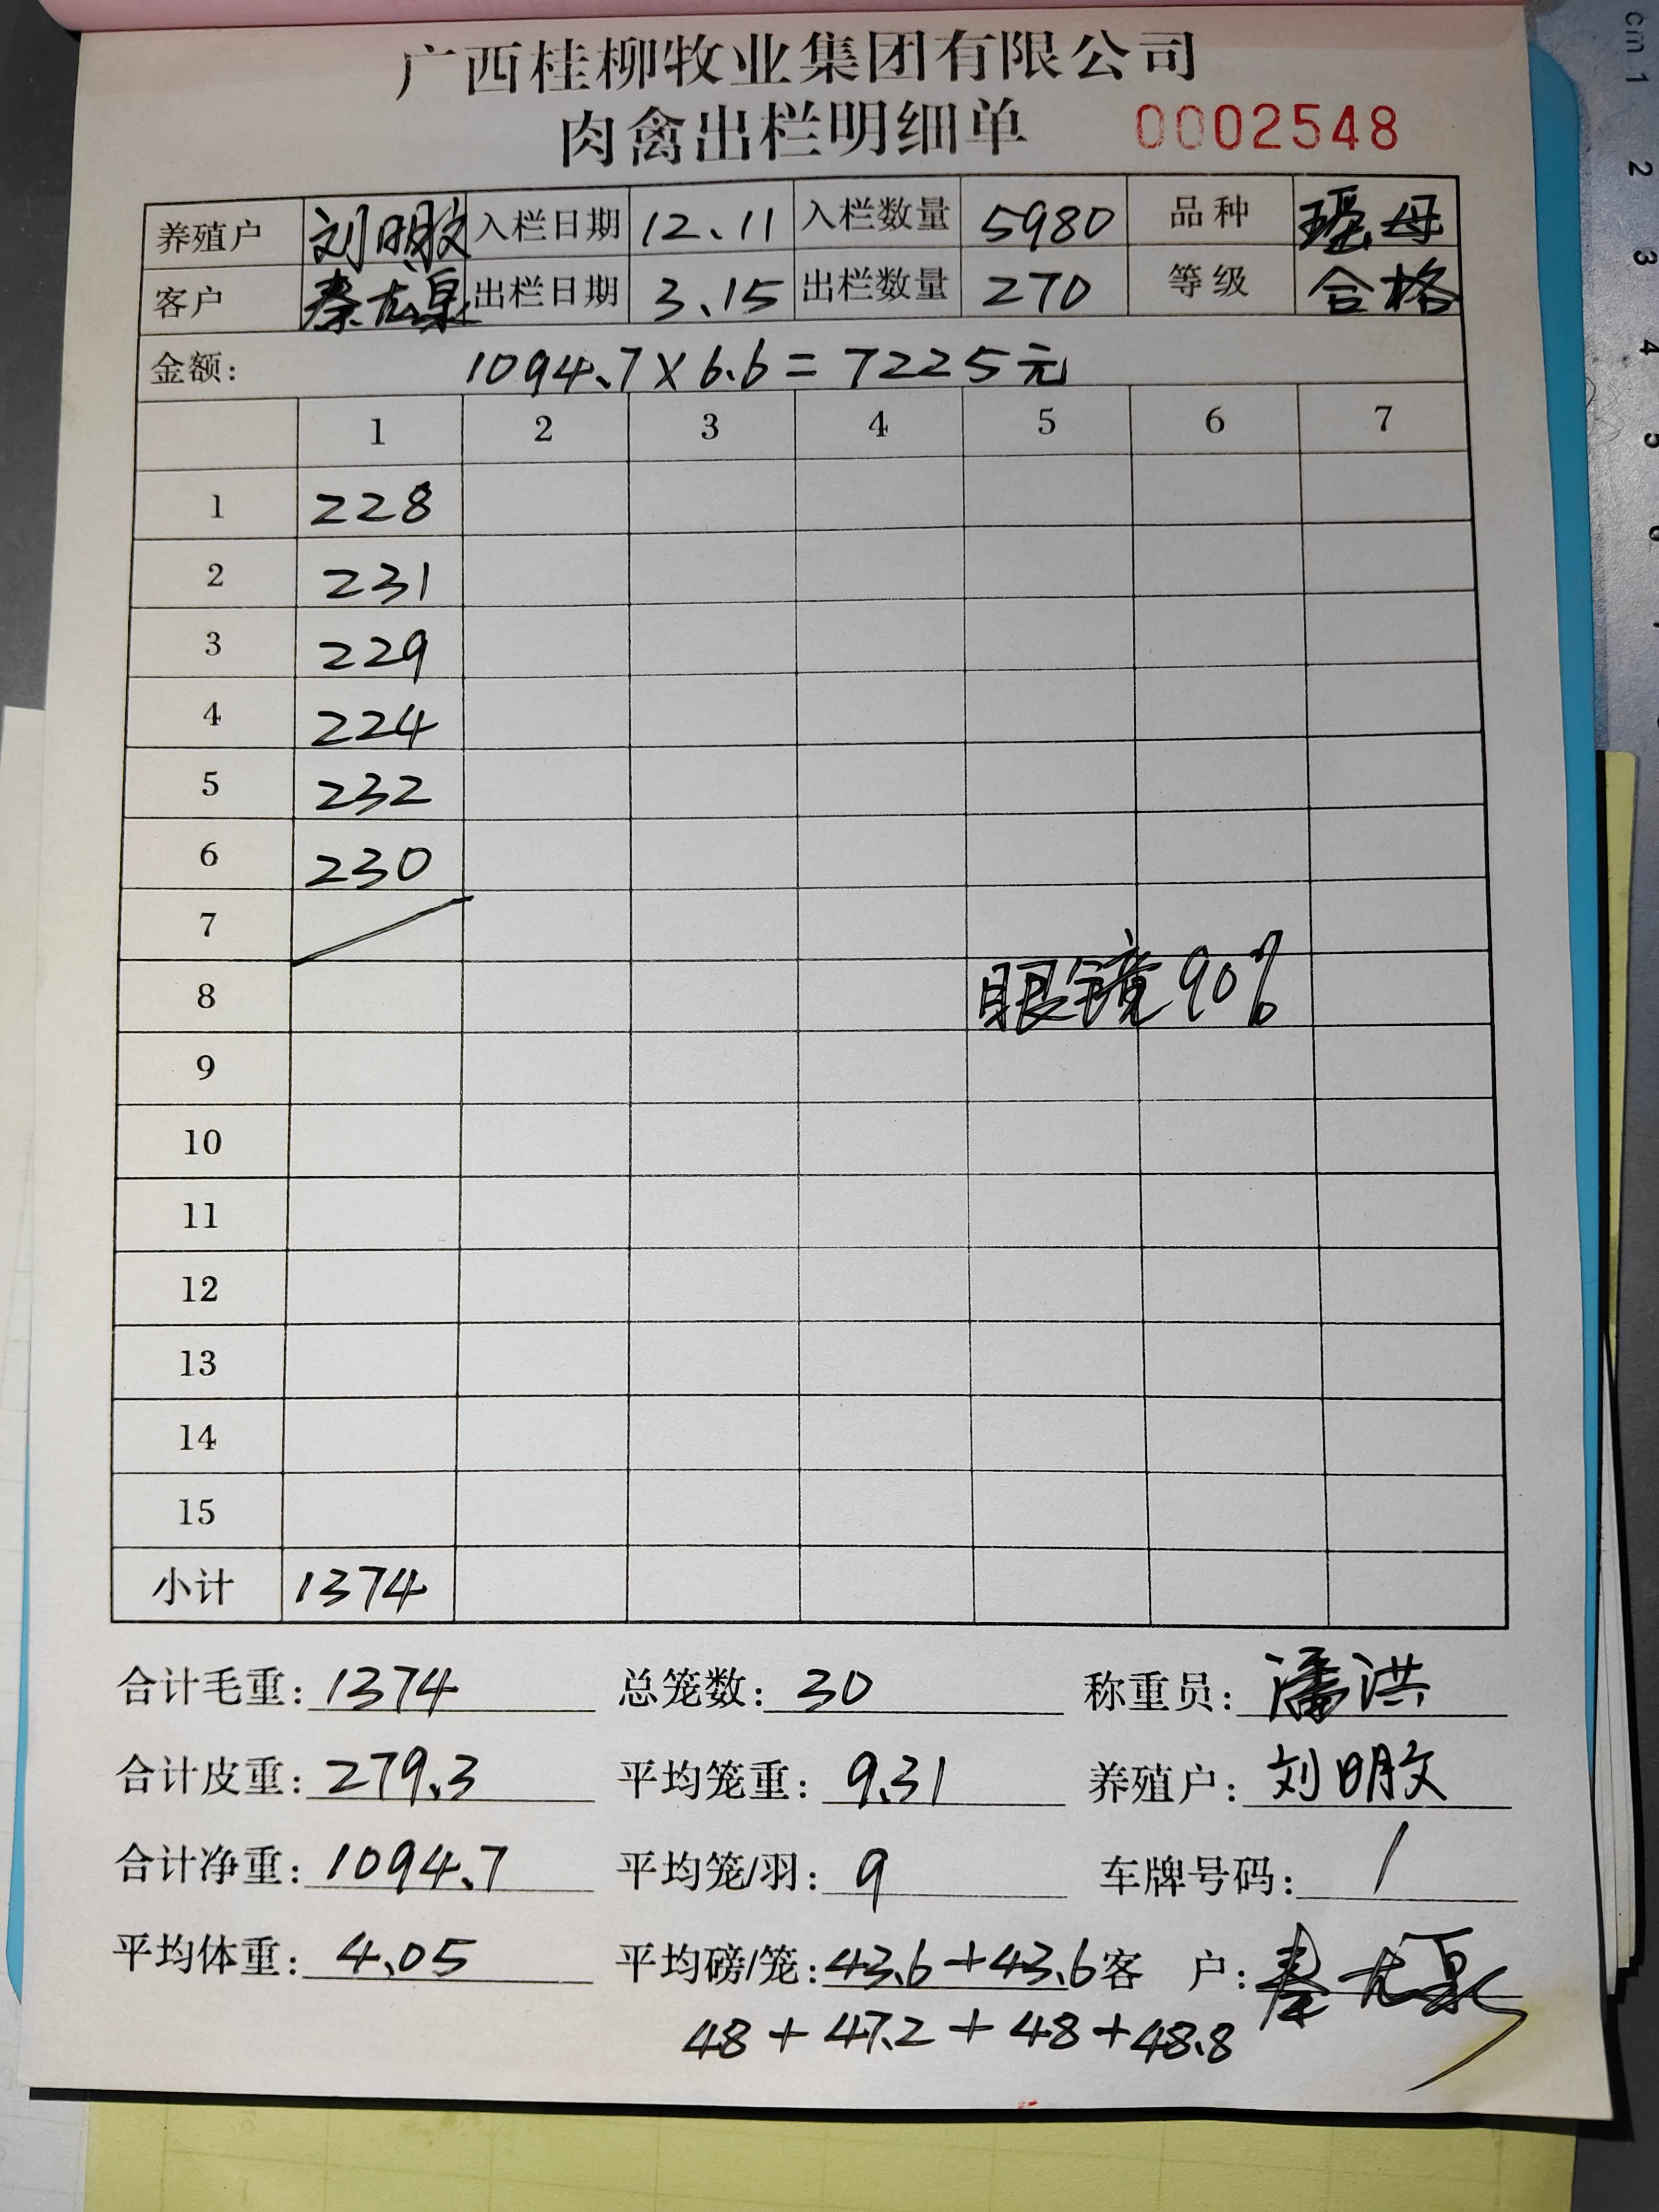 广西桂柳牧业集团有限公司
肉禽出栏明细单 0002548
养殖户 刘明敏 入栏日期 12.11 入栏数量 5980 品种 瑶母
客户 秦尤泉 出栏日期 3.15 出栏数量 270 等级 合格
金额: 1094.7×6.6=7225元
1 2 3 4 5 6 7
1 228
2 231
3 229
4 224
5 232
6 230
7
8 眼镜90%
9
10
11
12
13
14
15
小计 1374
合计毛重: 1374 总笼数: 30 称重员: 潘洪
合计皮重: 279.3 平均笼重: 9.31 养殖户: 刘明敏
合计净重: 1094.7 平均笼/羽: 9 车牌号码: /
平均体重: 4.05 平均磅/笼: 43.6+43.6 客 户: 秦尤泉
48+47.2+48+48.8
cm 1
2
3
4
5
6